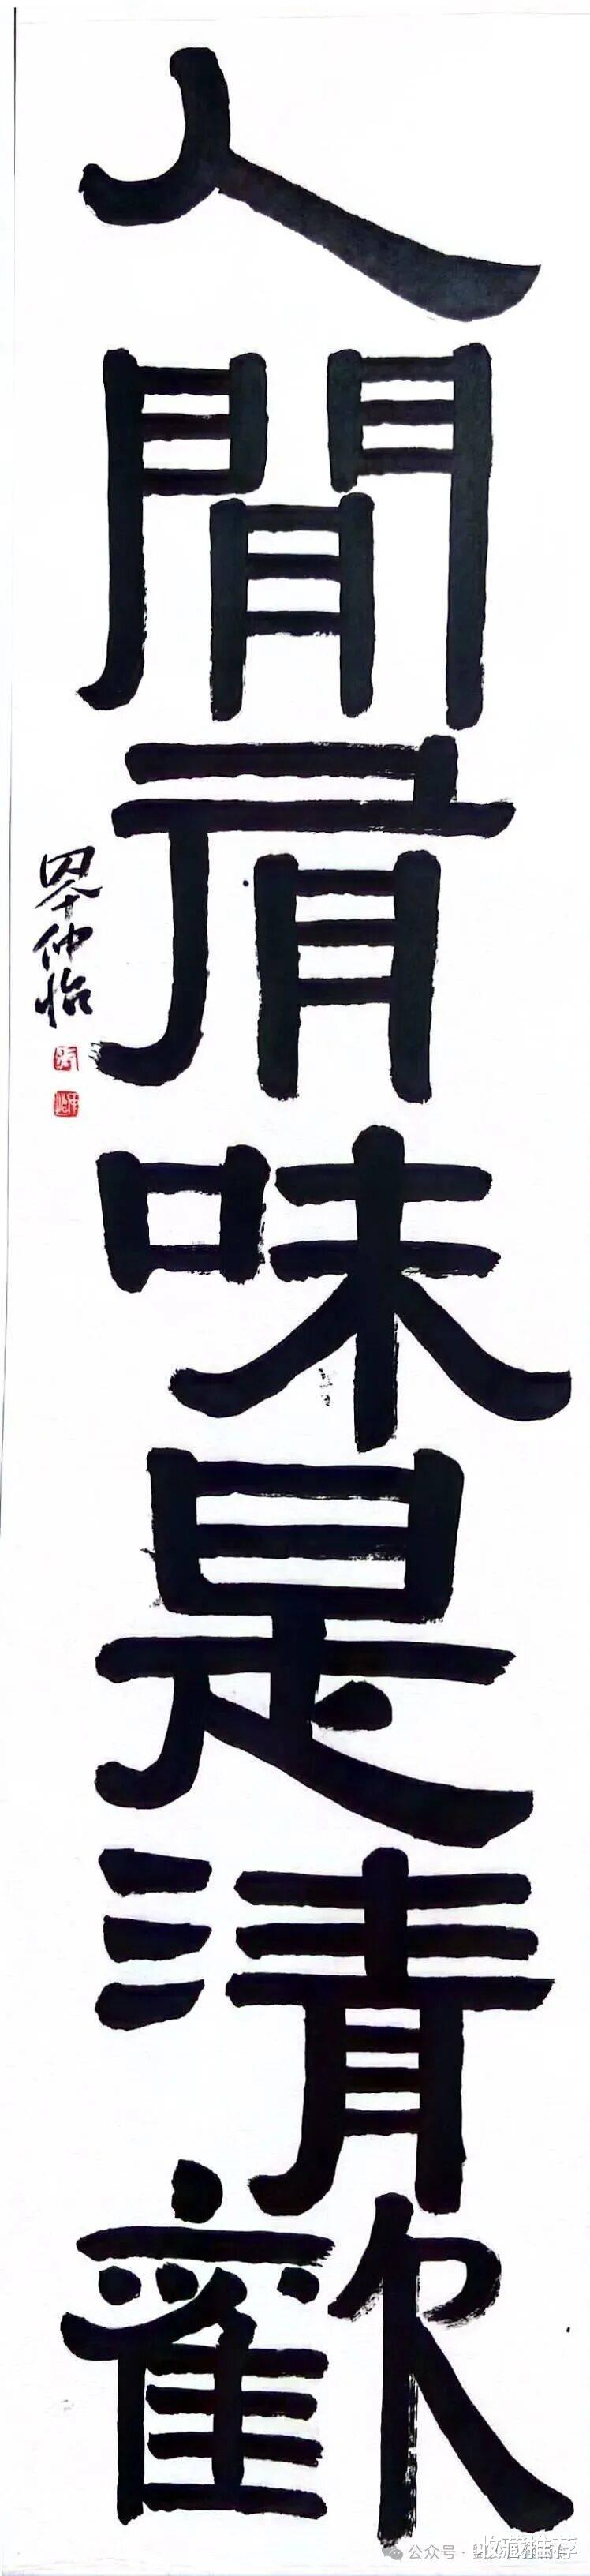 人間有味是清歡
仲怡
公众号·
收藏推荐